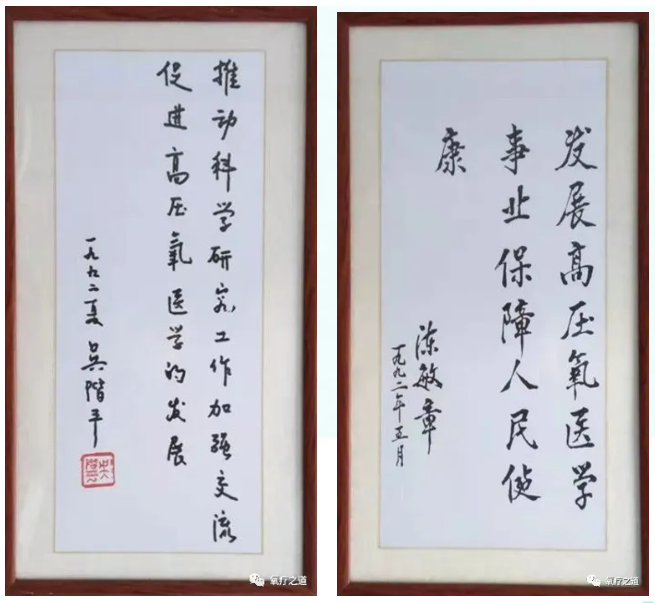 推动科学研究工作加强交流
促进高压氧医学的发展
一九九二夏 吴阶平
发展高压氧医学
事业保障人民健
康
陈敏章
一九九二年五月
氧疗之道
氧疗之道